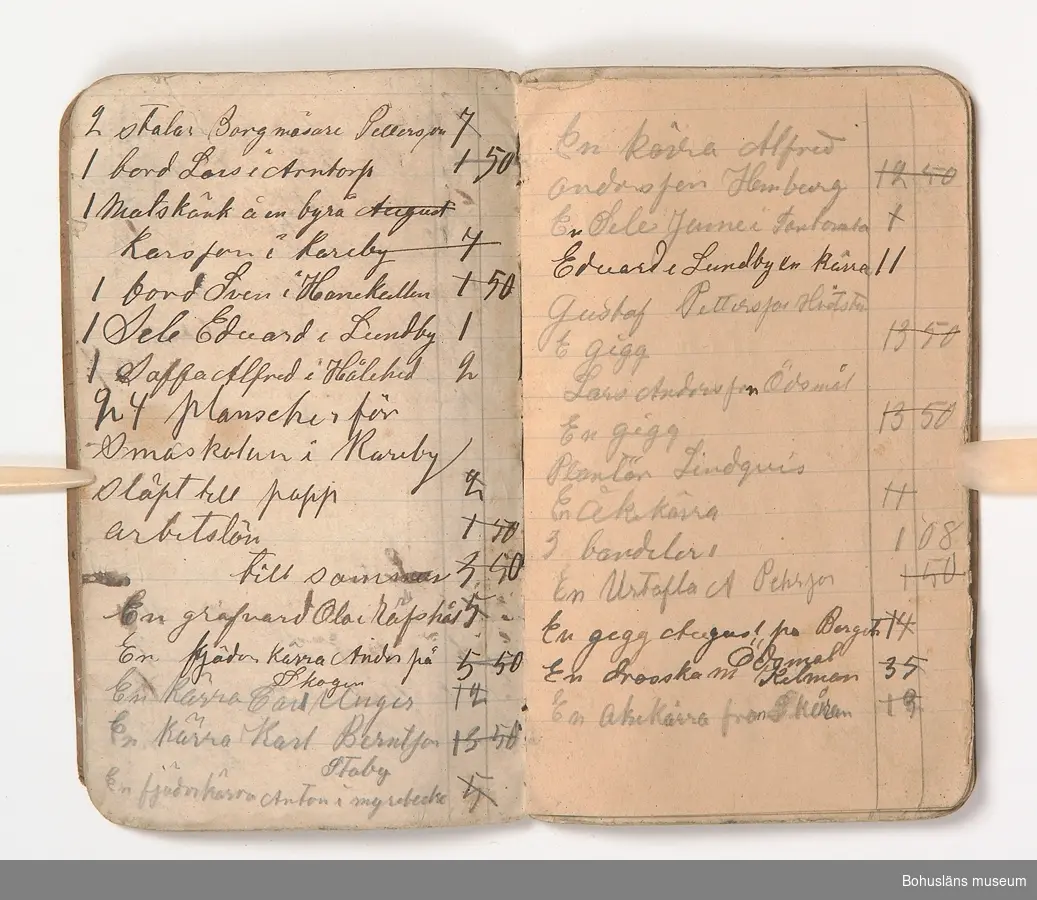 2 stolar Borgmäsare Pettersson 7
1 bord Lars i Arntorp 1 50
1 Matskänk å en byrå August
Karsson i Kareby 7
1 bord Sven i Hanekullen 1 50
1 Sele Eduard i Lundby 1
1 Soffa Alfred i Hålehed 2
24 planscher för
Småskolan i Kareby
släpt till papp 2
arbetslön 1 50
till samman 3 50
En grafvard Ola i Räfshål 5
En fjäder kärra Ander på 5 50
Skogen
En kärra Carl Unger 12
En kärra Karl Berntson 13 50
Staby
En fjäderkärra Anton i myrebecke 5
En kärra Alfred
Andersson Hemburg 12 50
En Sele Jume i 1
Eduard i Lundby en kärra 11
Gustaf Pettersson
E gigg 13 50
Lars Andersson Ödsmål
En gigg 13 50
Plantör Lindqvis
En Åkekärra 11
3 bandeler 1 08
En Urtafla A Pehrson 1 50
En gigg August på Berget 14
Ödsmål
En drosska M Kelman 35
En åkekärra från Skåran 13
Bohusläns museum